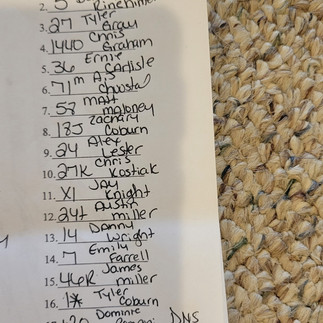 2. 5 Rinehimer
3. 27 Tyler Gray
4. 1440 Chris Graham
5. 36 Ernie Carlisle
6. 71m A.J. Chwosta
7. 58 Matt Maloney
8. 18J Zachary Coburn
9. 24 Alex Lester
10. 27K Chris Kostiak
11. X1 Jay Knight
12. 24t Austin Miller
13. 14 Danny Wright
14. 7 Emily Farrell
15. 46R James Miller
16. 1* Tyler Coburn
Dominic
DNS